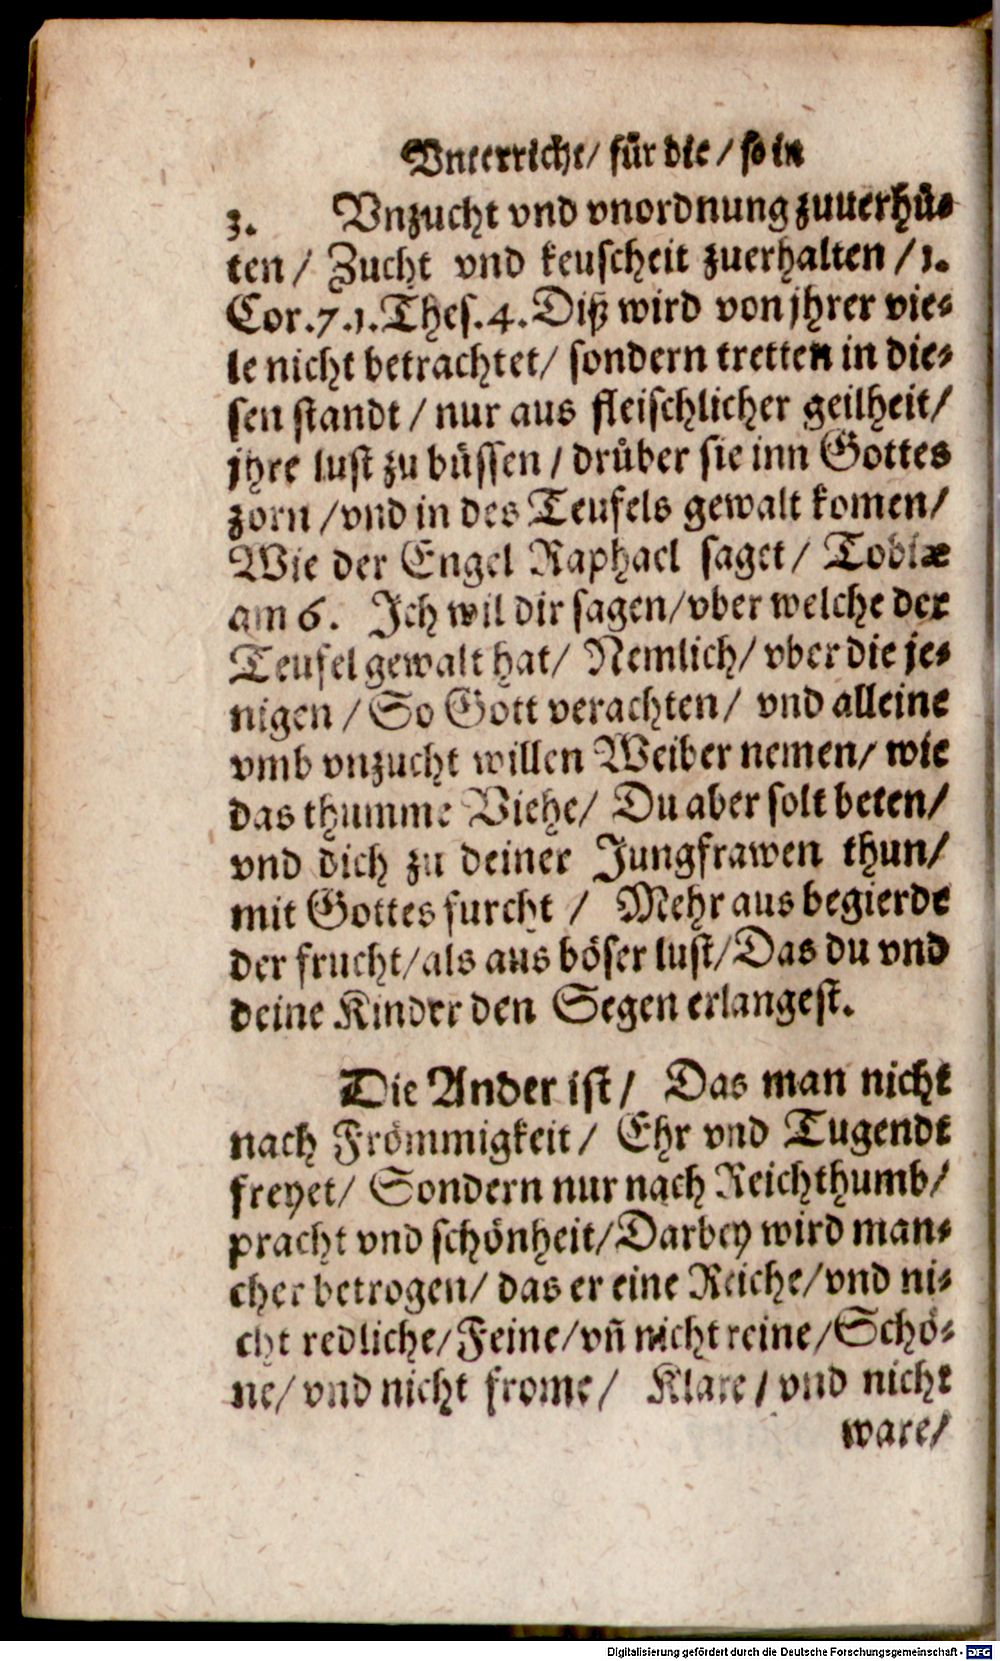 Vnterricht/ für die/ so in
3. Vnzucht vnd vnordnung zuuerhü⸗
ten/ Zucht vnd keuscheit zuerhalten/ 1.
Cor. 7. 1. Thes. 4. Diß wird von jhrer vie⸗
le nicht betrachtet/ sondern tretten in die⸗
sen standt/ nur aus fleischlicher geilheit/
jhre lust zu büssen/ drüber sie inn Gottes
zorn/ vnd in des Teufels gewalt komen/
Wie der Engel Raphael saget/ Tobiæ
am 6. Ich wil dir sagen/ vber welche der
Teufel gewalt hat/ Nemlich/ vber die je⸗
nigen/ So Gott verachten/ vnd alleine
vmb vnzucht willen Weiber nemen/ wie
das thumme Viehe/ Du aber solt beten/
vnd dich zu deiner Jungfrawen thun/
mit Gottes furcht/ Mehr aus begierde
der frucht/ als aus böser lust/ Das du vnd
deine Kinder den Segen erlangest.
Die Ander ist/ Das man nicht
nach Frömmigkeit/ Ehr vnd Tugendt
freyet/ Sondern nur nach Reichthumb/
pracht vnd schönheit/ Darbey wird man⸗
cher betrogen/ das er eine Reiche/ vnd ni⸗
cht redliche/ Feine/ vn̄ nicht reine/ Schö⸗
ne/ vnd nicht frome/ Klare/ vnd nicht
ware/
Digitalisierung gefördert durch die Deutsche Forschungsgemeinschaft - DFG